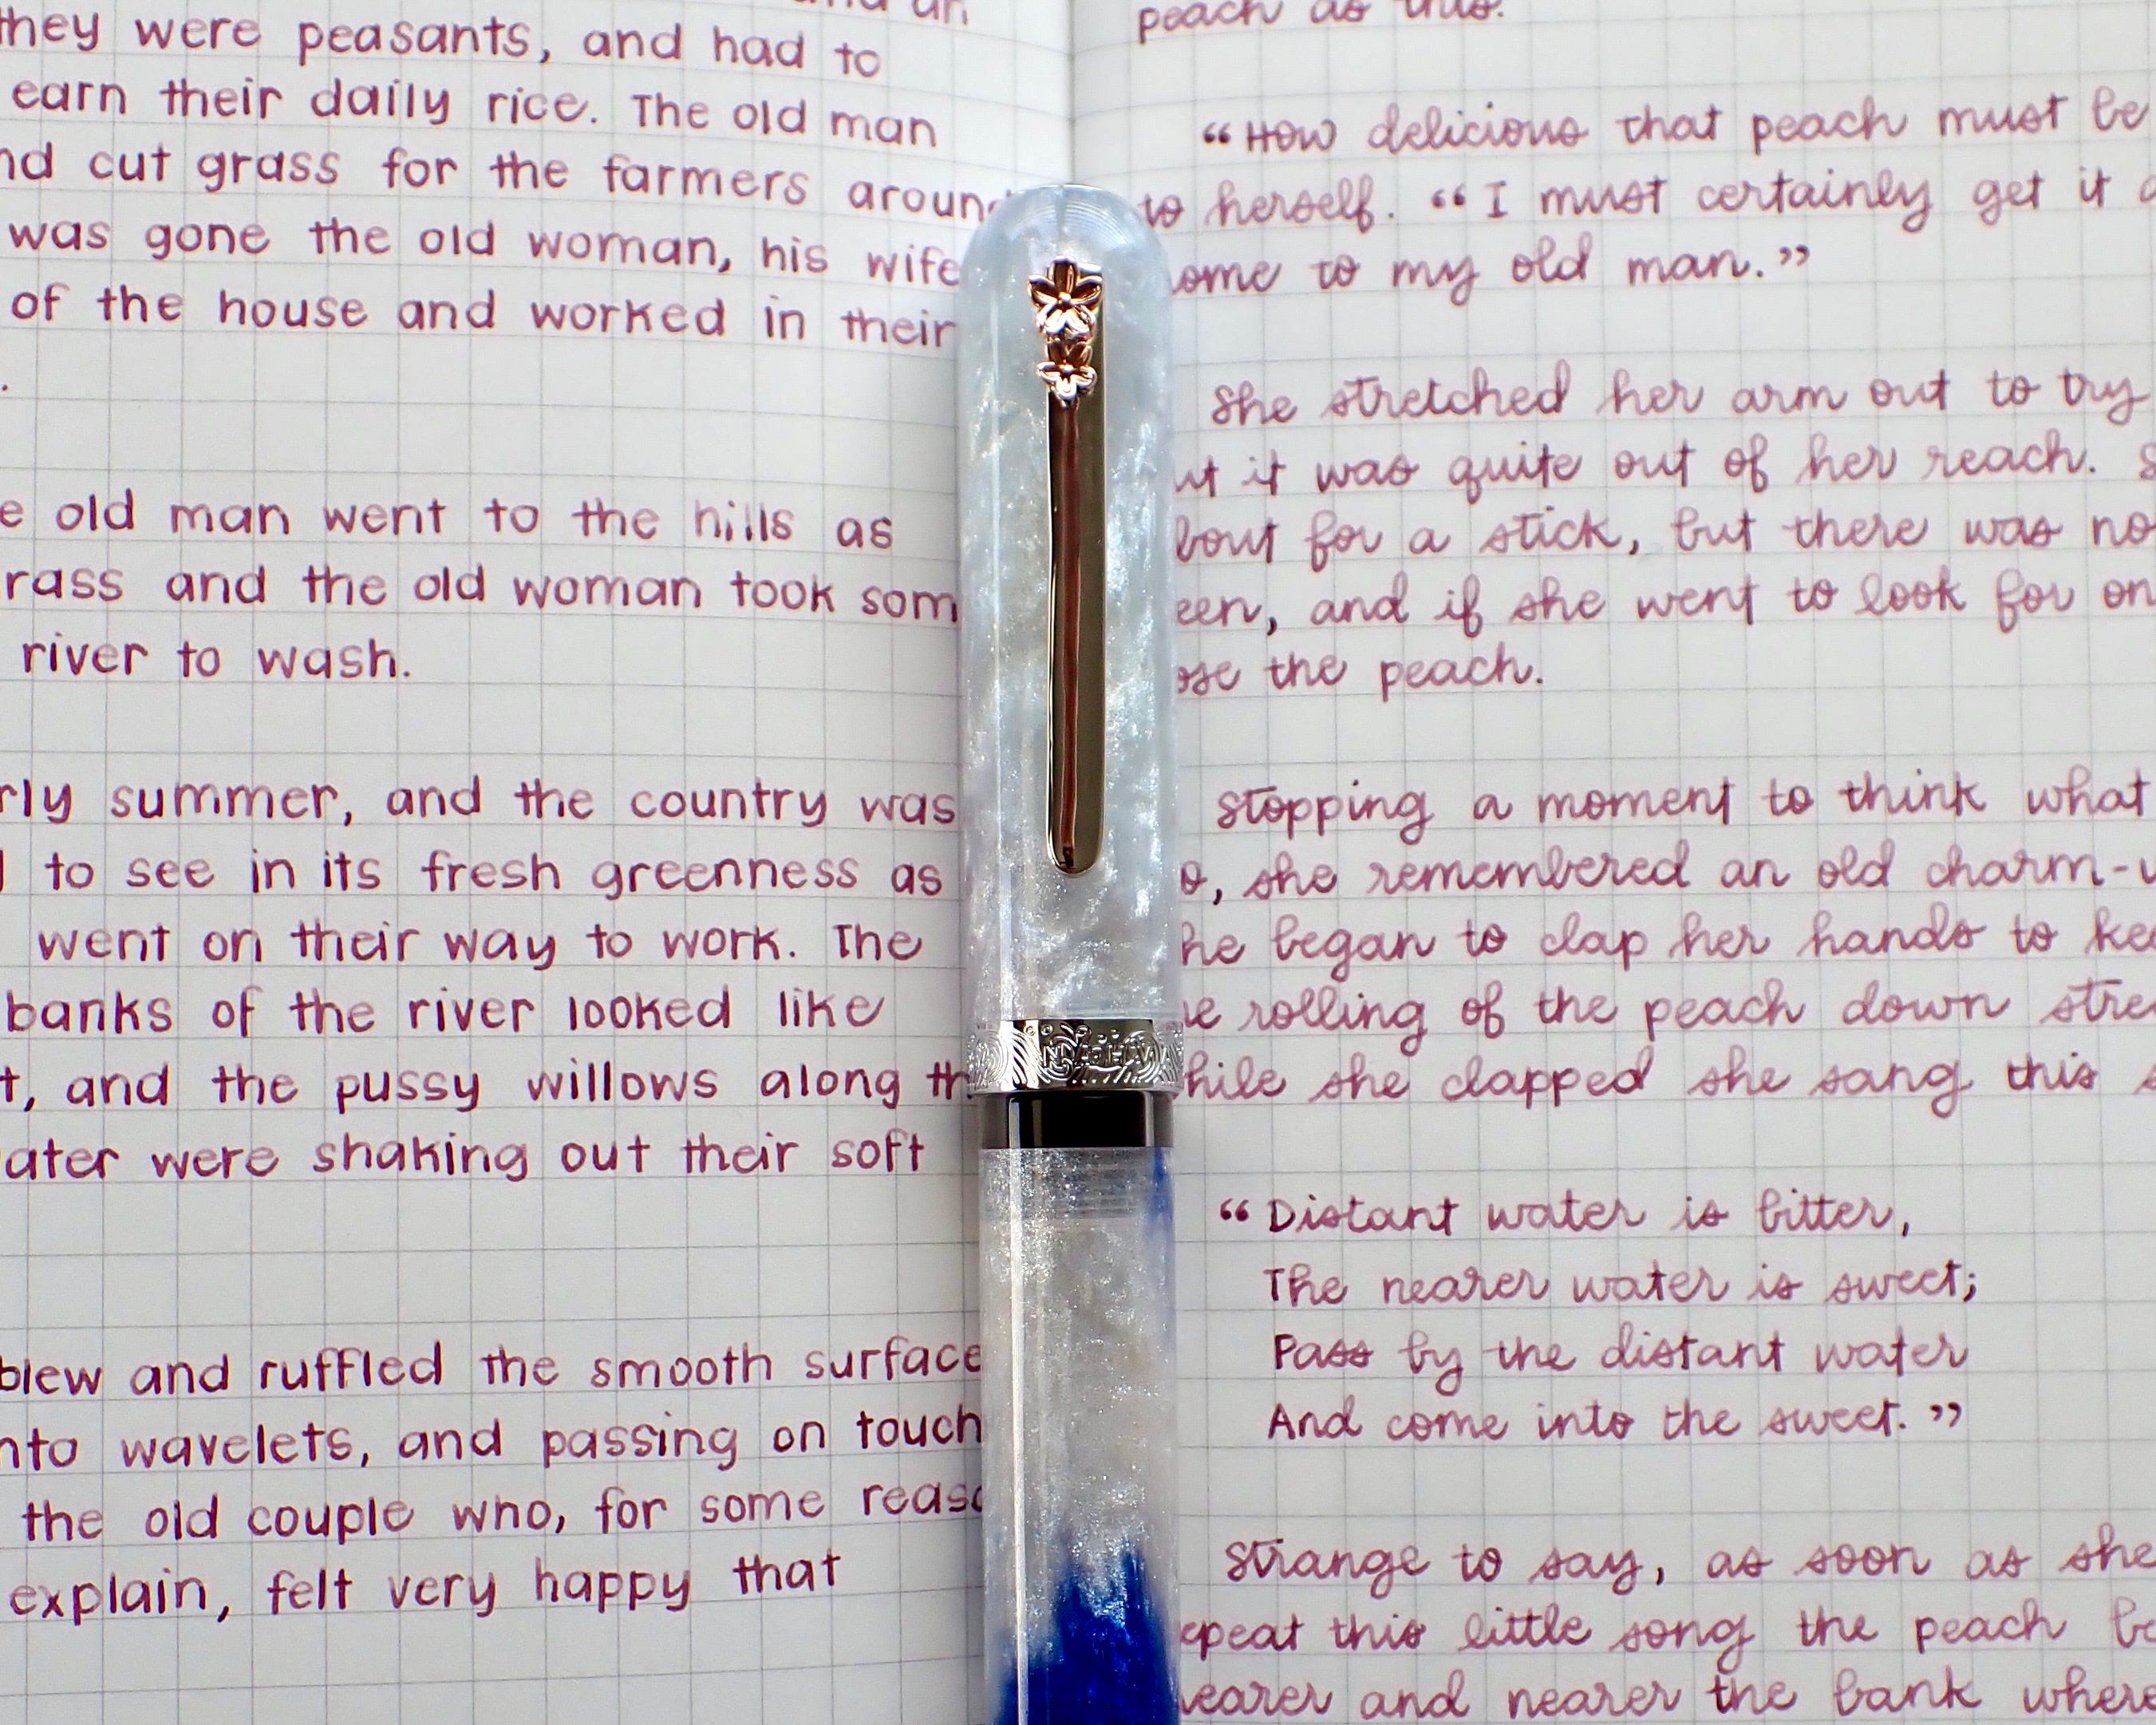 they were peasants, and had to
earn their daily rice. The old man
cut grass for the farmers
was gone the old woman, his wife
of the house and worked in their
old man went to the hills as
and the old woman took
river to wash.
summer, and the country was
to see in its fresh greenness as
went on their way to work. The
banks of the river looked like
and the pussy willows along
were shaking out their soft
blew and ruffled the smooth surface
wavelets, and passing on
the old couple who, for some
explain, felt very happy that
peach as this.
“How delicious that peach must be
to herself. “I must certainly get it
to my old man.”
She stretched her arm out to try
it was quite out of her reach.
for a stick, but there was
and if she went to look for
the peach.
Stopping a moment to think what
she remembered an old
began to clap her hands to
rolling of the peach down
she clapped she sang this
“Distant water is bitter,
The nearer water is sweet;
Pass by the distant water
And come into the sweet.”
Strange to say, as soon as she
this little song the peach
and nearer the bank where